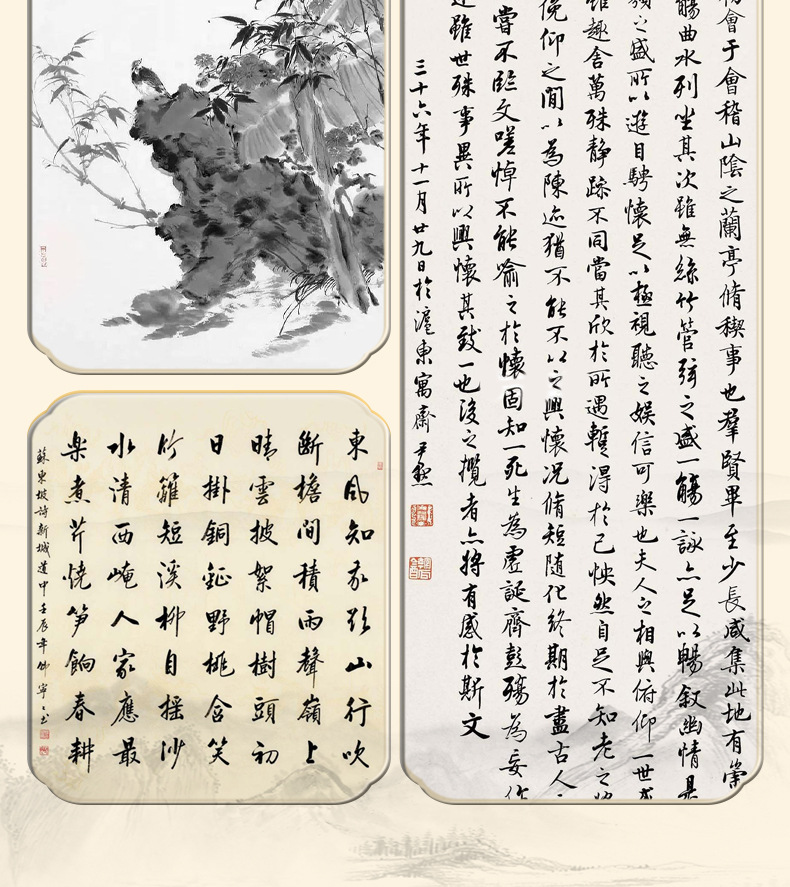 會于會稽山陰之蘭亭脩稧事也羣賢畢至少長咸集此地有崇
觴曲水列坐其次雖無絲竹管弦之盛一觴一詠亦足以暢敘幽情是
類之盛所以遊目騁懷足以極視聽之娛信可樂也夫人之相與俯仰一世或
雖趣舍萬殊靜躁不同當其欣於所遇暫得於己怏然自足不知老之將
俛仰之間以為陳迹猶不能不以之興懷況脩短隨化終期於盡古人
嘗不臨文嗟悼不能喻之於懷固知一死生為虛誕齊彭殤為妄作
述雖世殊事異所以興懷其致一也後之攬者亦將有感於斯文
三十六年十一月廿九日於滬東寓齋 尹默
東風知我欲山行吹
斷檐間積雨聲嶺上
晴雲披絮帽樹頭初
日掛銅鉦野桃含笑
竹籬短溪柳自搖沙
水清西崦人家應最
樂煮芹燒笋餉春耕
蘇東坡詩新城道中 壬辰年